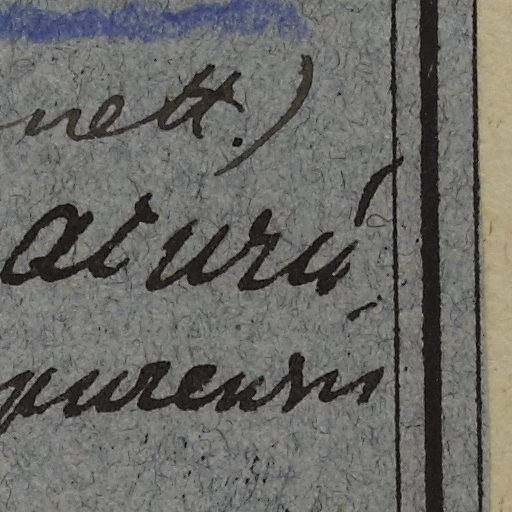 nett.)
aiurú,
purensis